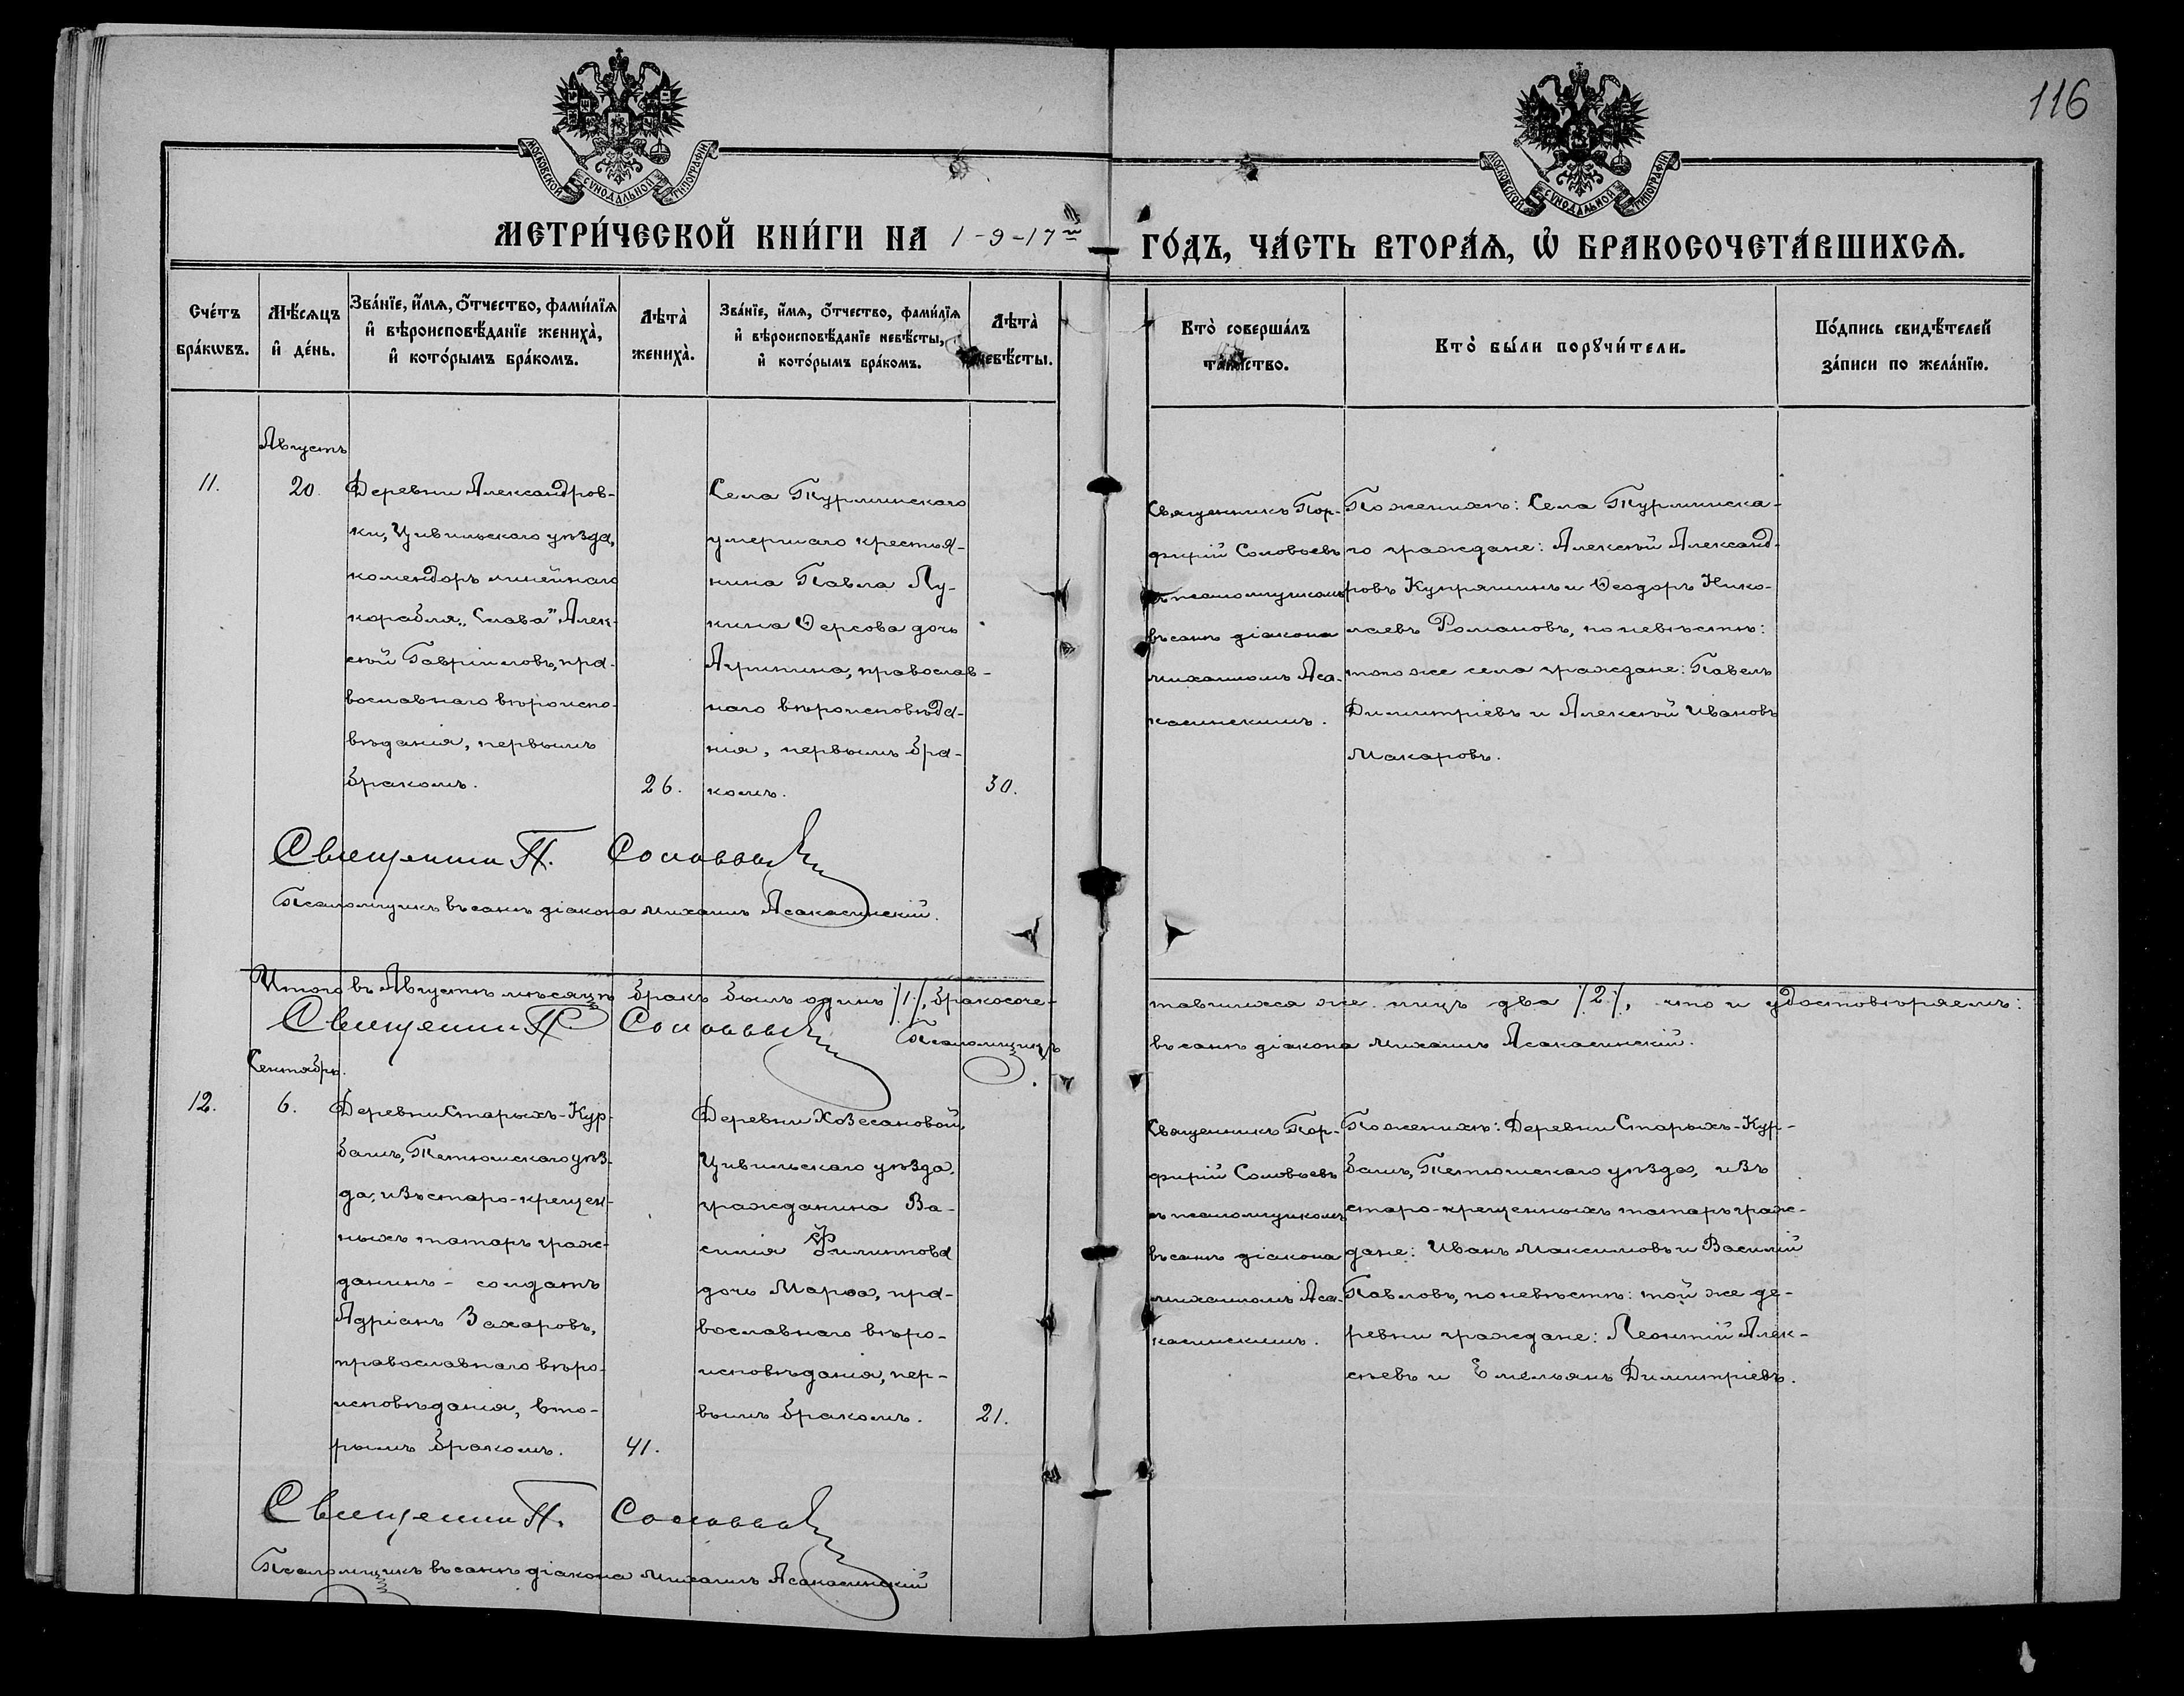 116
МОСКОВСКОЙ СѴНОДАЛЬНОЙ ТИПОГРАФІИ
МОСКОВСКОЙ СѴНОДАЛЬНОЙ ТИПОГРАФІИ
МЕТРИ́ЧЕСКОЙ КНИ́ГИ НА 1-9-17й ГО́ДЪ, ЧА́СТЬ ВТОРА́Ѧ, Ѽ БРАКОСОЧЕТА́ВШИХСѦ.
Сче́тъ
бра́кѡвъ.
Мѣ́сѧцъ
и҆ де́нь.
Зва́нїе, и҆́мѧ, ѻ҆́тчество, фами́лїѧ
и҆ вѣроисповѣ́данїе жениха̀,
и҆ кото́рымъ бра́комъ.
Лѣта̀
жениха̀.
Зва́нїе, и҆́мѧ, ѻ҆́тчество, фами́лїѧ
и҆ вѣроисповѣ́данїе невѣ́сты,
и҆ кото́рымъ бра́комъ.
Лѣта̀
невѣ́сты.
Кто̀ соверша́лъ
та́инство.
Кто̀ бы́ли порꙋчи́тели.
По́дпись свидѣ́телей
за́писи по жела́нїю.
Августъ
11.
20.
Деревни Александров-
ки, Цивильскаго уѣзда,
комендоръ линейнаго
корабля „Слава" Алек-
сѣй Гавріиловъ, пра-
вославнаго вѣроиспо-
вѣданія, первымъ
бракомъ.
26.
Села Турминскаго
умершаго крестья-
нина Павла Лу-
кина Ѳерсова дочь
Агрипина, православ-
наго вѣроисповѣда-
нія, первымъ бра-
комъ.
30.
Священникъ Пор-
фирій Соловьевъ
съ псаломщикомъ
въ санѣ діакона
Михаиломъ Аса-
касинскимъ.
По женихѣ: Села Турминска-
го граждане: Алексѣй Александ-
ровъ Купряшинъ и Ѳеодоръ Нико-
лаевъ Романовъ, по невѣстѣ:
того же села граждане: Павелъ
Димитріевъ и Алексѣй Ивановъ
Макаровъ.
Священникъ П. Соловьевъ
Псаломщикъ въ санѣ діакона Михаилъ Асакасинскій.
Итого въ Августѣ мѣсяцѣ бракъ былъ одинъ /1/, бракосоче-
тавшихся же лицъ два /2/, что и удостовѣряемъ:
Священникъ П. Соловьевъ Псаломщикъ
въ санѣ діакона Михаилъ Асакасинскій.
Сентябрь.
12.
6.
Деревни Старыхъ-Кур-
башъ, Тетюшскаго уѣз-
да, изъ старо-крещен-
ныхъ татаръ граж-
данинъ - солдатъ
Адріанъ Захаровъ,
православнаго вѣро-
исповѣданія, вто-
рымъ бракомъ.
41.
Деревни Хозесановой,
Цивильскаго уѣзда,
гражданина Ва-
силія Филиппова
дочь Марѳа, пра-
вославнаго вѣро-
исповѣданія, пер-
вымъ бракомъ.
21.
Священникъ Пор-
фирій Соловьевъ
съ псаломщикомъ
въ санѣ діакона
Михаиломъ Аса-
касинскимъ.
По женихѣ: Деревни Старыхъ-Кур-
башъ, Тетюшскаго уѣзда, изъ
старо-крещенныхъ татаръ граж-
дане: Иванъ Максимовъ и Василій
Павловъ, по невѣстѣ: той же де-
ревни граждане: Леонтій Алек-
сѣевъ и Емельянъ Димитріевъ.
Священникъ П. Соловьевъ
Псаломщикъ въ санѣ діакона Михаилъ Асакасинскій